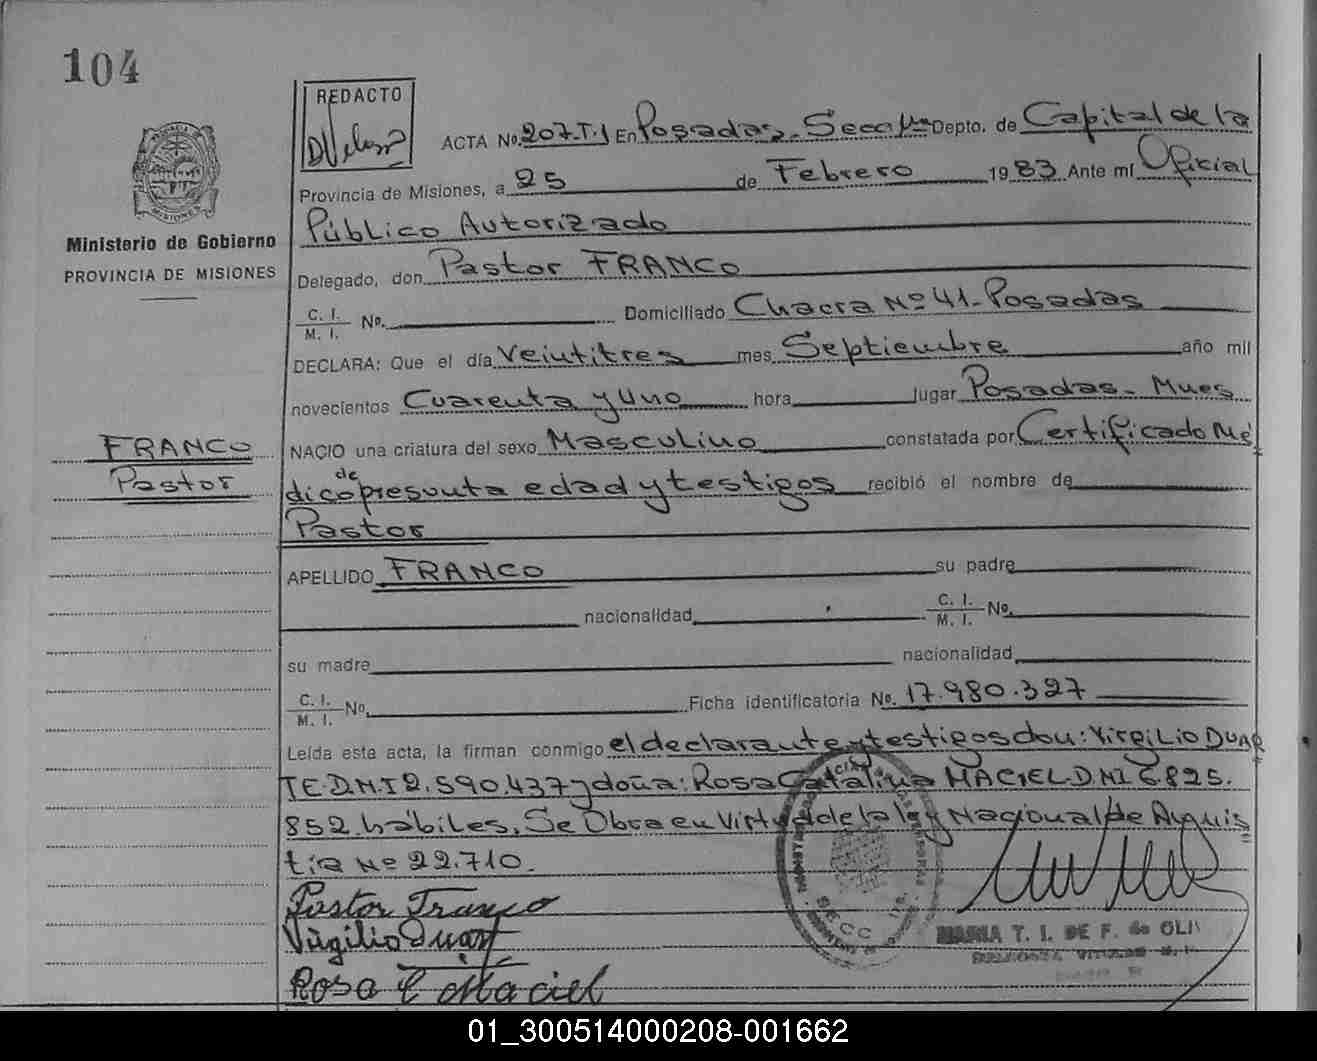 104
REDACTO
ACTA No. 207.T.I En Posadas. Secc 1ra Depto. de Capital de la
Provincia de Misiones, a 25 de Febrero 1983 Ante mí Oficial
Público Autorizado
Ministerio de Gobierno
PROVINCIA DE MISIONES
Delegado, don Pastor FRANCO
C. I. No. Domiciliado Chacra Nº 41. Posadas
M. I.
DECLARA: Que el día Veintitres mes Septiembre año mil
novecientos Cuarenta y Uno hora lugar Posadas - Mnes
FRANCO
Pastor
NACIO una criatura del sexo Masculino constatada por Certificado Mé
dico de presunta edad y testigos recibió el nombre de
Pastor
APELLIDO FRANCO su padre
nacionalidad C. I. No.
M. I.
su madre nacionalidad
C. I. No. Ficha identificatoria No. 17.980.327
M. I.
Leída esta acta, la firman conmigo el declarante y testigos don: Virgilio DUAR
TE. D.N.I 2.590.437 y doña: Rosa Catalina MACIEL D.N.I 6.825.
852 hábiles. Se Obra en Virtud de la ley Nacional de Amnis
tia Nº 22.710.
Pastor Franco
Virgilio Duart
Rosa C Maciel
MARIA T. I. DE F. de OLI
01_300514000208-001662